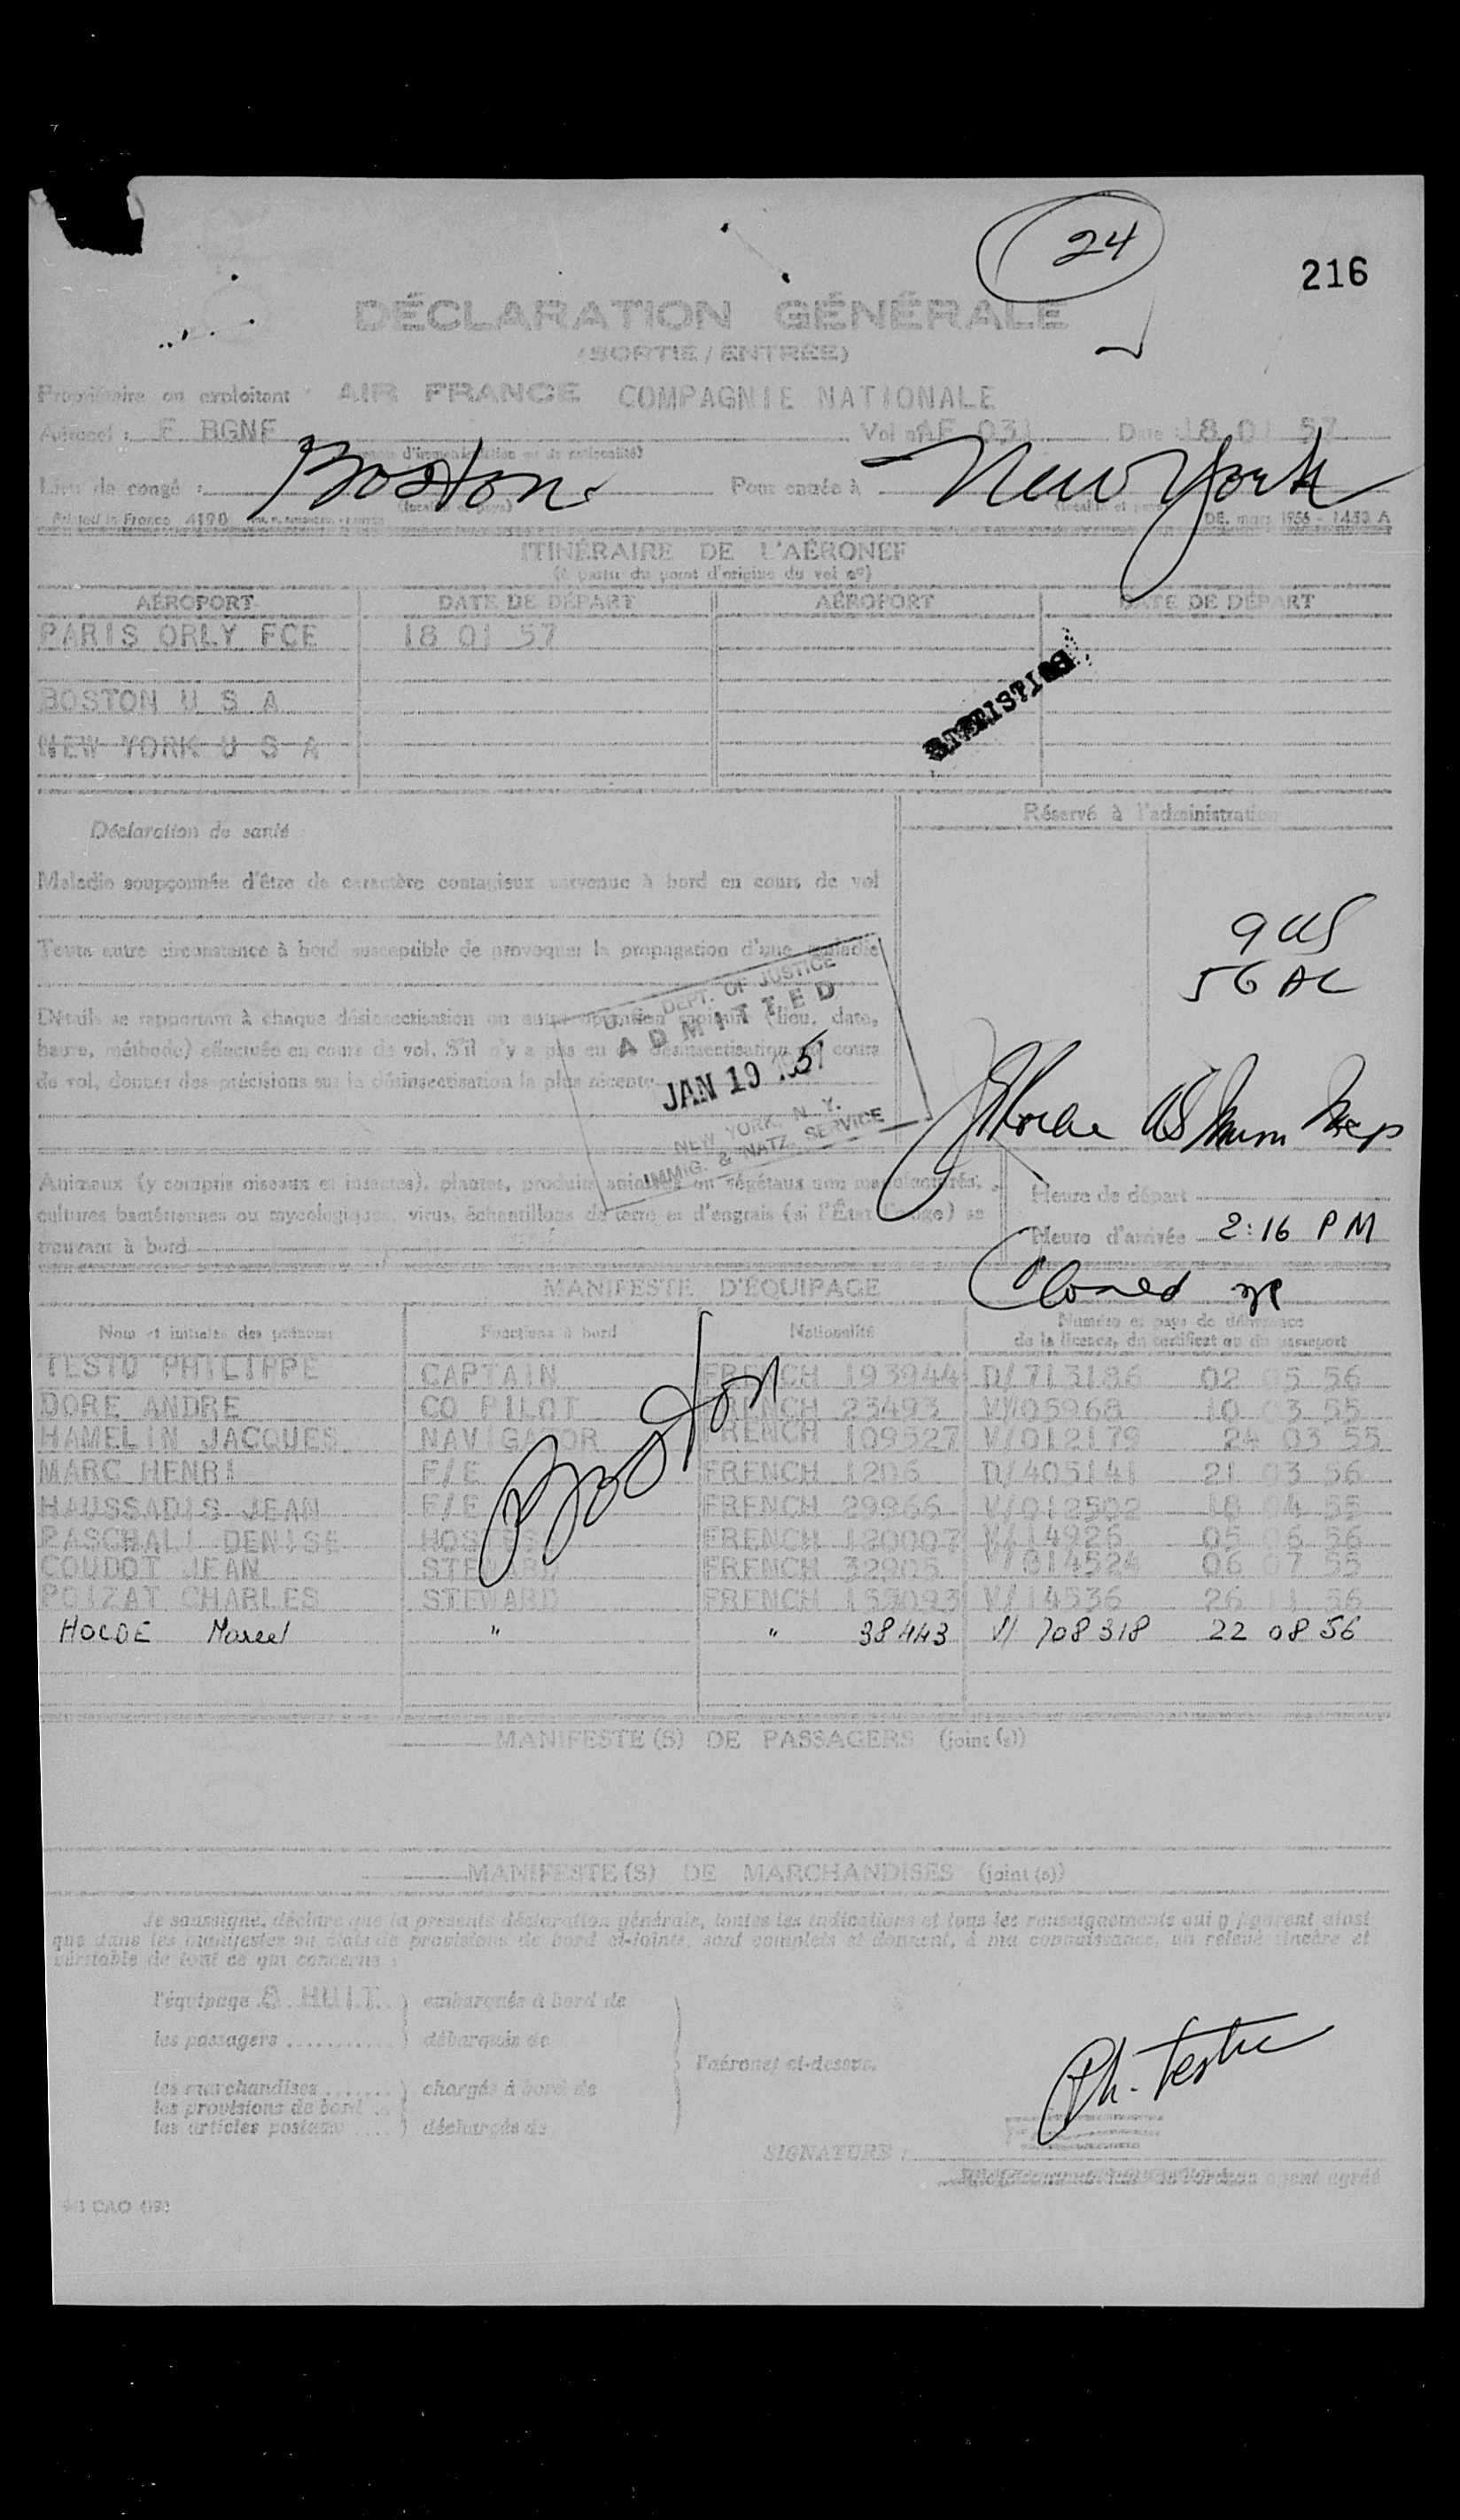 24
216
DÉCLARATION GÉNÉRALE
(SORTIE / ENTRÉE)
Propriétaire ou exploitant : AIR FRANCE COMPAGNIE NATIONALE
Aéronef : F BGNF Vol nº AF 031 Date 18 01 57
Lieu de congé : Boston Pour entrée à New York
(localité et pays)
Printed in France 4190 DE. mars 1956 - 1450 A
ITINÉRAIRE DE L'AÉRONEF
(à partir du point d'origine du vol nº)
AÉROPORT DATE DE DÉPART AÉROPORT DATE DE DÉPART
PARIS ORLY FCE 18 01 57
BOSTON U S A
NEW YORK U S A
Déclaration de santé
Réservé à l'administration
Maladie soupçonnée d'être de caractère contagieux survenue à bord en cours de vol
9 US
56 AL
Toute autre circonstance à bord susceptible de provoquer la propagation d'une maladie
Détails se rapportant à chaque désinsectisation ou autre opération (lieu, date,
heure, méthode) effectuée en cours de vol. S'il n'y a pas eu de désinsectisation en cours
de vol, donner des précisions sur la désinsectisation la plus récente
U. S. DEPT. OF JUSTICE
ADMITTED
JAN 19 1957
NEW YORK, N. Y.
IMMIG. & NATZ. SERVICE
Animaux (y compris oiseaux et insectes), plantes, produits animaux ou végétaux non manufacturés,
cultures bactériennes ou mycologiques, virus, échantillons de terre et d'engrais (si l'État l'exige) se
trouvant à bord
Heure de départ
Heure d'arrivée 2:16 PM
Closed
MANIFESTE D'ÉQUIPAGE
Nom et initiales des prénoms Fonctions à bord Nationalité Numéro et pays de délivrance
de la licence, du certificat ou du passeport
TESTU PHILIPPE CAPTAIN FRENCH 193944 D/713186 02 05 56
DORE ANDRE CO PILOT FRENCH 23493 V/05968 10 03 55
HAMELIN JACQUES NAVIGATOR FRENCH 109527 V/012179 24 03 55
MARC HENRI F/E FRENCH 1206 D/405141 21 03 56
HAUSSADIS JEAN F/E FRENCH 29966 V/012502 18 04 55
PASCHALI DENISE HOSTESS FRENCH 120007 V/14926 05 06 56
COUDOT JEAN STEWARD FRENCH 32905 V/014524 06 07 55
POIZAT CHARLES STEWARD FRENCH 159093 V/14536 26 11 56
HOLDE Marcel " " 38443 V/ 708318 22 08 56
Boston
MANIFESTE (S) DE PASSAGERS (joint (s))
MANIFESTE (S) DE MARCHANDISES (joint (s))
Je soussigné, déclare que la présente déclaration générale, toutes les indications et tous les renseignements qui y figurent ainsi
que dans les manifestes ou états de provisions de bord ci-joints, sont complets et donnent, à ma connaissance, un relevé sincère et
véritable de tout ce qui concerne :
l'équipage 8 HUIT ) embarqués à bord de
les passagers ........... ) débarqués de
l'aéronef ci-dessus.
les marchandises ....... ) chargés à bord de
les provisions de bord ..
les articles postaux ... ) déchargés de
Ph. Testu
SIGNATURE :
agent agréé